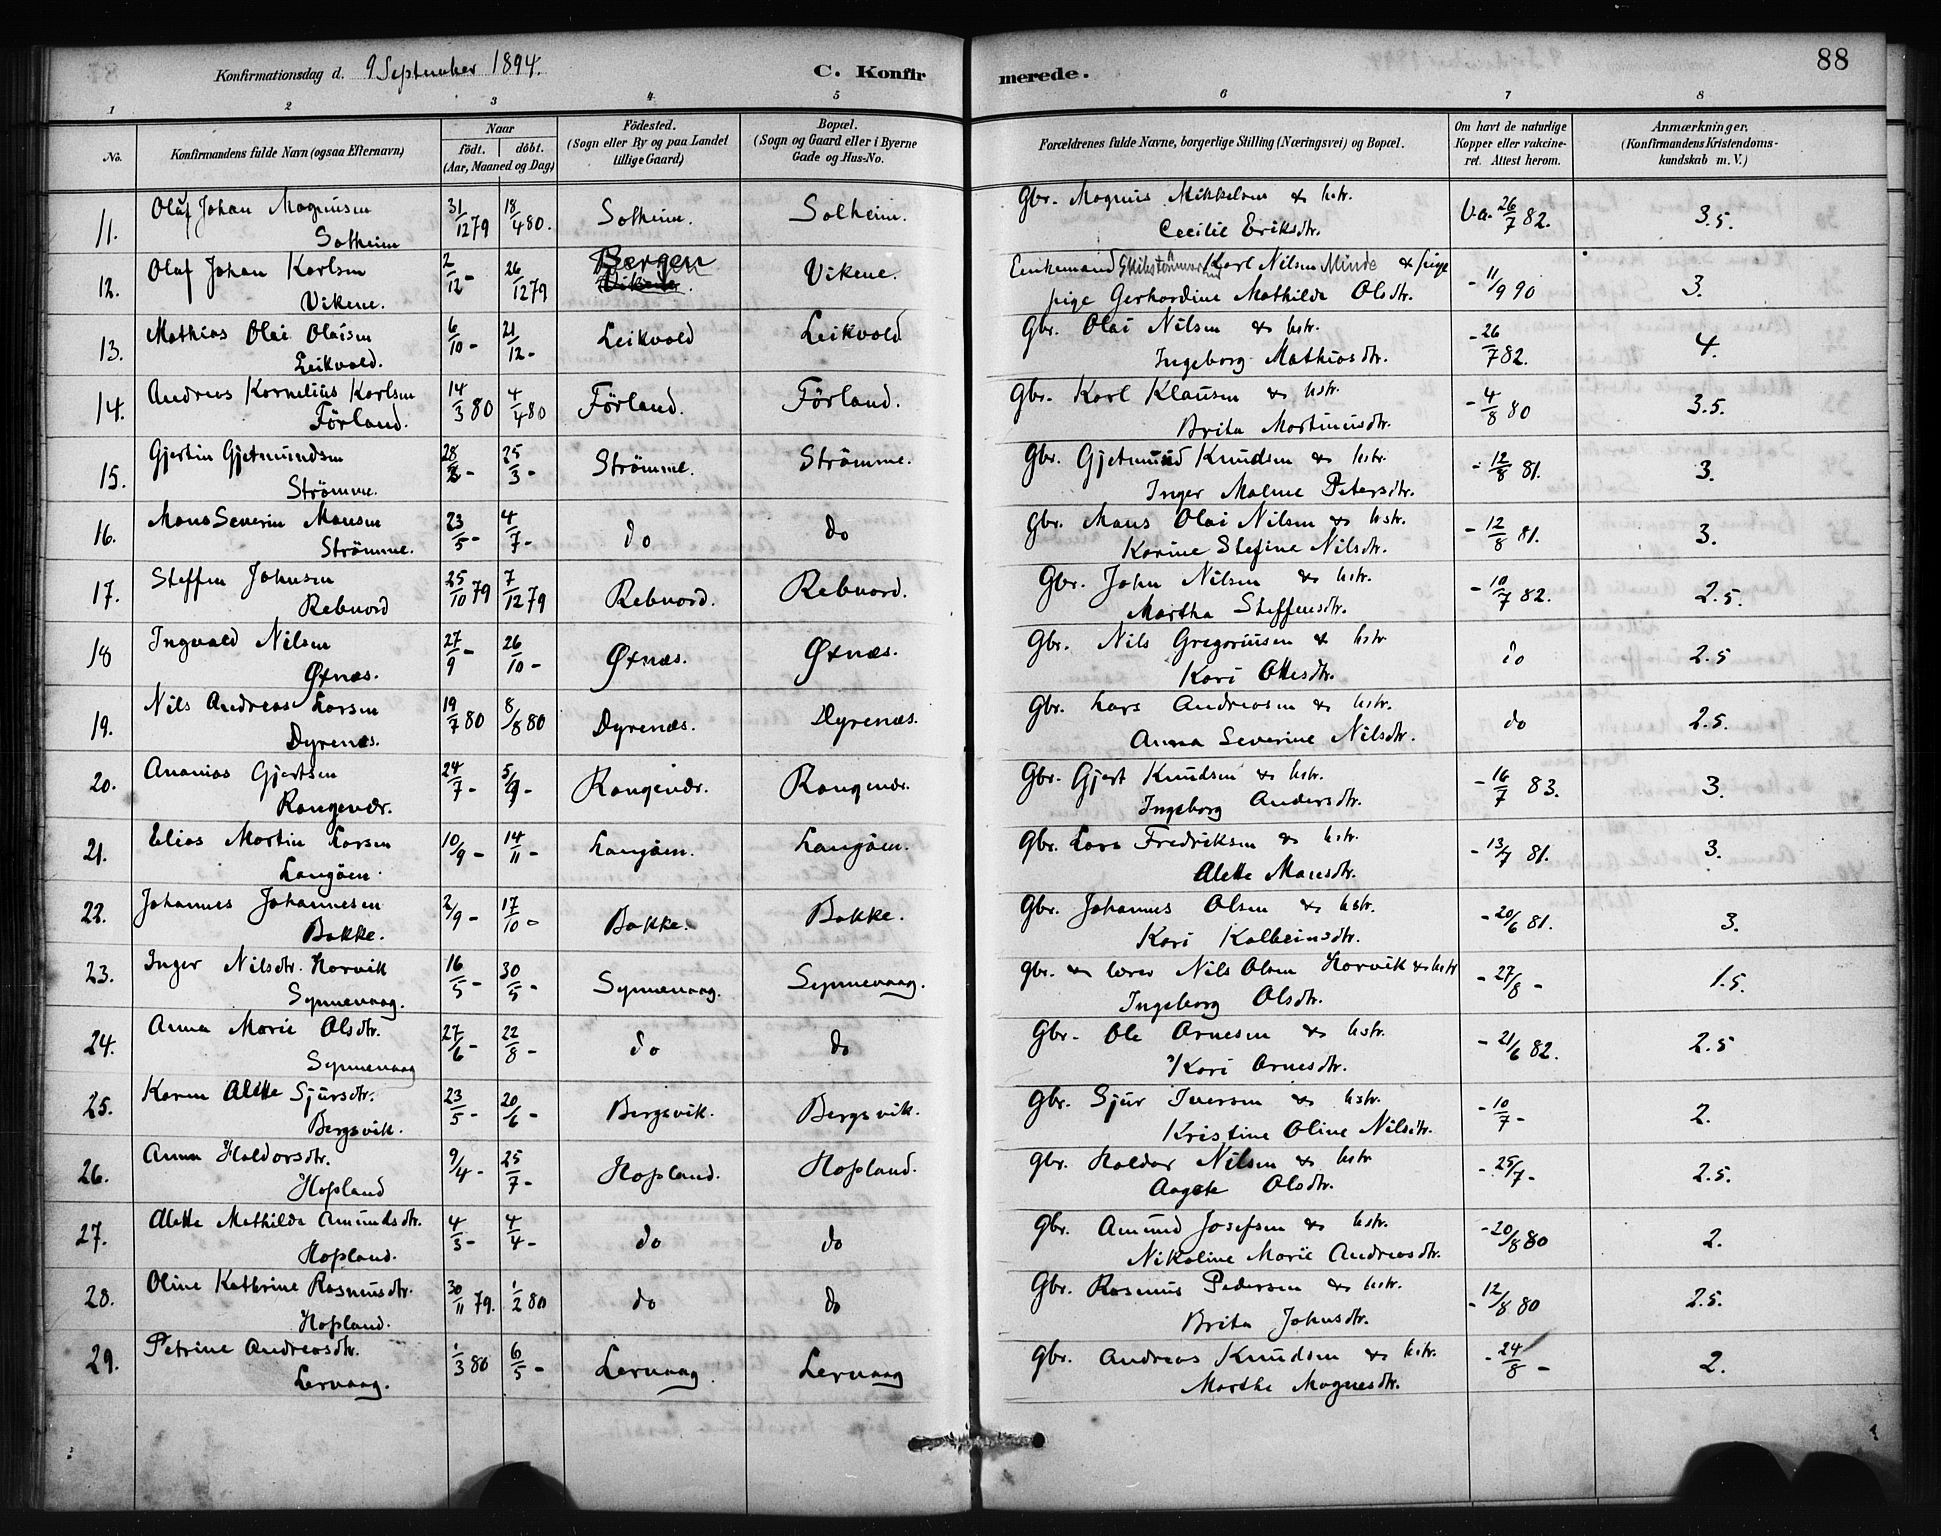 Konfirmationsdag d. 9 September 1894.
C. Konfirmerede.
88
1 2 3 4 5 6 7 8
No.
Konfirmandens fulde Navn (ogsaa Efternavn)
Naar
født. døbt.
(Aar, Maaned og Dag)
Födested.
(Sogn eller By og paa Landet
tillige Gaard)
Bopæl.
(Sogn og Gaard eller i Byerne
Gade og Hus-No.
Forældrenes fulde Navne, borgerlige Stilling (Næringsvei) og Bopæl.
Om havt de naturlige
Kopper eller vakcine-
ret. Attest herom.
Anmærkninger.
(Konfirmandens Kristendoms-
kundskab m. V.)
11. Oluf Johan Magnusen Solheim 31/12 79 18/4 80. Solheim. Solheim. Gbr. Magnus Mikkelsen & hstr. Cecilie Eriksdtr. Va. 26/7 82. 3.5.
12. Olaf Johan Karlsen Vikene. 2/12 - 26/12 79 Bergen Vikene. Vikene. Enkemand Karl Nilsen Minde & pige pige Gerhardine Mathilde Olsdtr. - 11/9 90 3.
13. Mathias Olai Olaisen Leikvold. 6/10 - 21/12 - Leikvold Leikvold Gbr. Olai Nilsen & hstr. Ingeborg Mathiasdtr. - 26/7 82. 4.
14. Andreas Kornelius Karlsen Förland. 14/3 80 4/4 80 Förland. Förland. Gbr. Karl Klausen & hstr. Brita Martinusdtr. - 4/8 80 3.5.
15. Gjertin Gjetmundsen Strömme. 28/2 - 25/3 - Strömme. Strömme. Gbr. Gjetmund Knudsen & hstr. Inger Malene Petersdtr. - 12/8 81. 3.
16. Mons Severin Monsen Strömme. 23/5 - 4/7 - do do Gbr. Mons Olai Nilsen & hstr. Karine Stefine Nilsdtr. - 12/8 81. 3.
17. Steffen Johnsen Rebnord 25/10 79 7/12 79 Rebnord. Rebnord. Gbr. John Nilsen & hstr. Martha Steffensdtr. - 10/7 82. 2.5.
18 Ingvald Nilsen Øxnæs. 27/9 - 26/10 - Øxnæs. Øxnæs. Gbr. Nils Gregoriusen & hstr Kari Ottesdtr. do 2.5
19. Nils Andreas Larsen Dyrenæs. 19/7 80 8/8 80 Dyrenæs. Dyrenæs. Gbr. Lars Andreasen & hstr. Anna Severine Nilsdtr. do 2.5.
20. Ananias Gjertsen Rongevær. 24/7 - 5/9 - Rongevær. Rongevær. Gbr. Gjert Knudsen & hstr. Ingeborg Andersdtr. - 16/7 83. 3.
21. Elias Martin Larsen Langöen. 10/9 - 14/11 - Langöen. Langöen. Gbr. Lars Fredriksen & hstr. Alette Monsdtr. - 13/7 81. 3.
22. Johannes Johannesen Bakke. 2/9 - 17/10 - Bakke. Bakke. Gbr. Johannes Olsen & hstr. Kari Kolbeinsdtr. - 20/6 81. 3.
23. Inger Nilsdtr. Horvik Synnevaag. 16/5 - 30/5 - Synnevaag. Synnevaag. Gbr. & lærer Nils Olsen Horvik & hstr Ingeborg Olsdtr. - 27/8 - 1.5.
24. Anna Marie Olsdtr. Synnevaag 27/6 - 22/8 - do do Gbr. Ole Arnesen & hstr. Kari Arnesdtr. - 21/6 82. 2.5
25. Karen Alette Sjursdtr. Bergsvik. 23/5 - 20/6 - Bergsvik. Bergsvik. Gbr. Sjur Iversen & hstr. Kristine Oline Nilsdtr. - 10/7 - 2.
26. Anna Haldorsdtr. Hopland 9/4 - 25/7 - Hopland. Hopland. Gbr. Haldor Nilsen & hstr Aagate Olsdtr. - 25/7 - 2.5.
27. Alette Mathilde Amundsdtr. Hopland. 4/3 - 4/4 - do do Gbr. Amund Josefsen & hstr. Nikoline Marie Andreasdtr. - 20/8 80 2.
28. Oline Kathrine Rasmusdtr. Hopland. 30/11 79. 1/2 80 do do Gbr. Rasmus Pedersen & hstr. Brita Johnsdtr. - 12/8 80 2.5.
29. Petrine Andreasdtr. Lervaag. 1/3 80 6/5 - Lervaag. Lervaag Gbr. Andreas Knudsen & hstr. Marthe Magnesdtr. - 24/8 - 2.